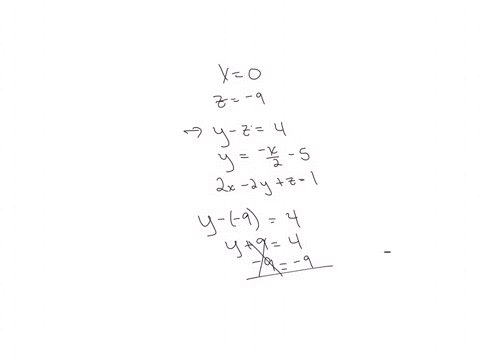 x = 0
z = -9
→ y - z = 4
y = -x/2 - 5
2x - 2y + z = 1
y - (-9) = 4
y + 9 = 4
-9 = -9